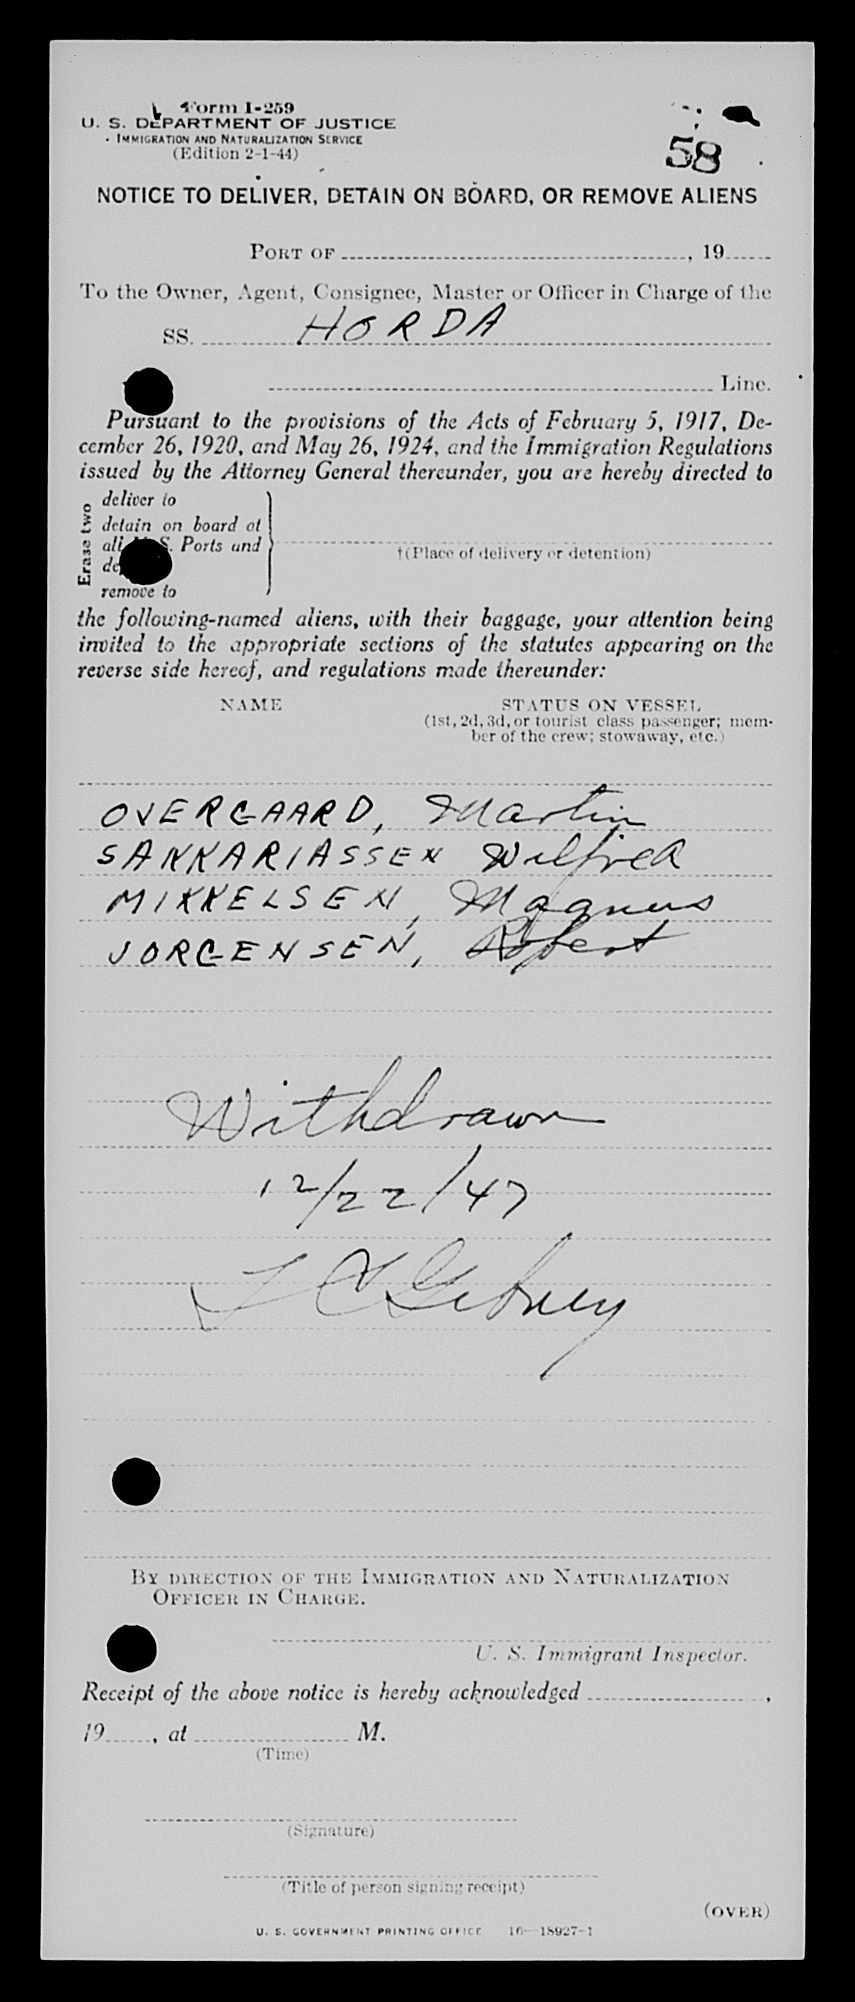 Form I-259
U. S. DEPARTMENT OF JUSTICE
IMMIGRATION AND NATURALIZATION SERVICE
(Edition 2-1-44)
58
NOTICE TO DELIVER, DETAIN ON BOARD, OR REMOVE ALIENS
PORT OF , 19
To the Owner, Agent, Consignee, Master or Officer in Charge of the
SS. HORDA
Line.
Pursuant to the provisions of the Acts of February 5, 1917, De-
cember 26, 1920, and May 26, 1924, and the Immigration Regulations
issued by the Attorney General thereunder, you are hereby directed to
Erase two
deliver to
detain on board at
all S. Ports and
remove to
†(Place of delivery or detention)
the following-named aliens, with their baggage, your attention being
invited to the appropriate sections of the statutes appearing on the
reverse side hereof, and regulations made thereunder:
NAME STATUS ON VESSEL
(1st, 2d, 3d, or tourist class passenger; mem-
ber of the crew; stowaway, etc.)
OVERGAARD, Martin
SAKKARIASSEN Wilfred
MIKKELSEN, Magnus
JORGENSEN, Robert
Withdrawn
12/22/47
BY DIRECTION OF THE IMMIGRATION AND NATURALIZATION
OFFICER IN CHARGE.
U. S. Immigrant Inspector.
Receipt of the above notice is hereby acknowledged ,
19 , at M.
(Time)
(Signature)
(Title of person signing receipt)
(OVER)
U. S. GOVERNMENT PRINTING OFFICE 16—18927-1